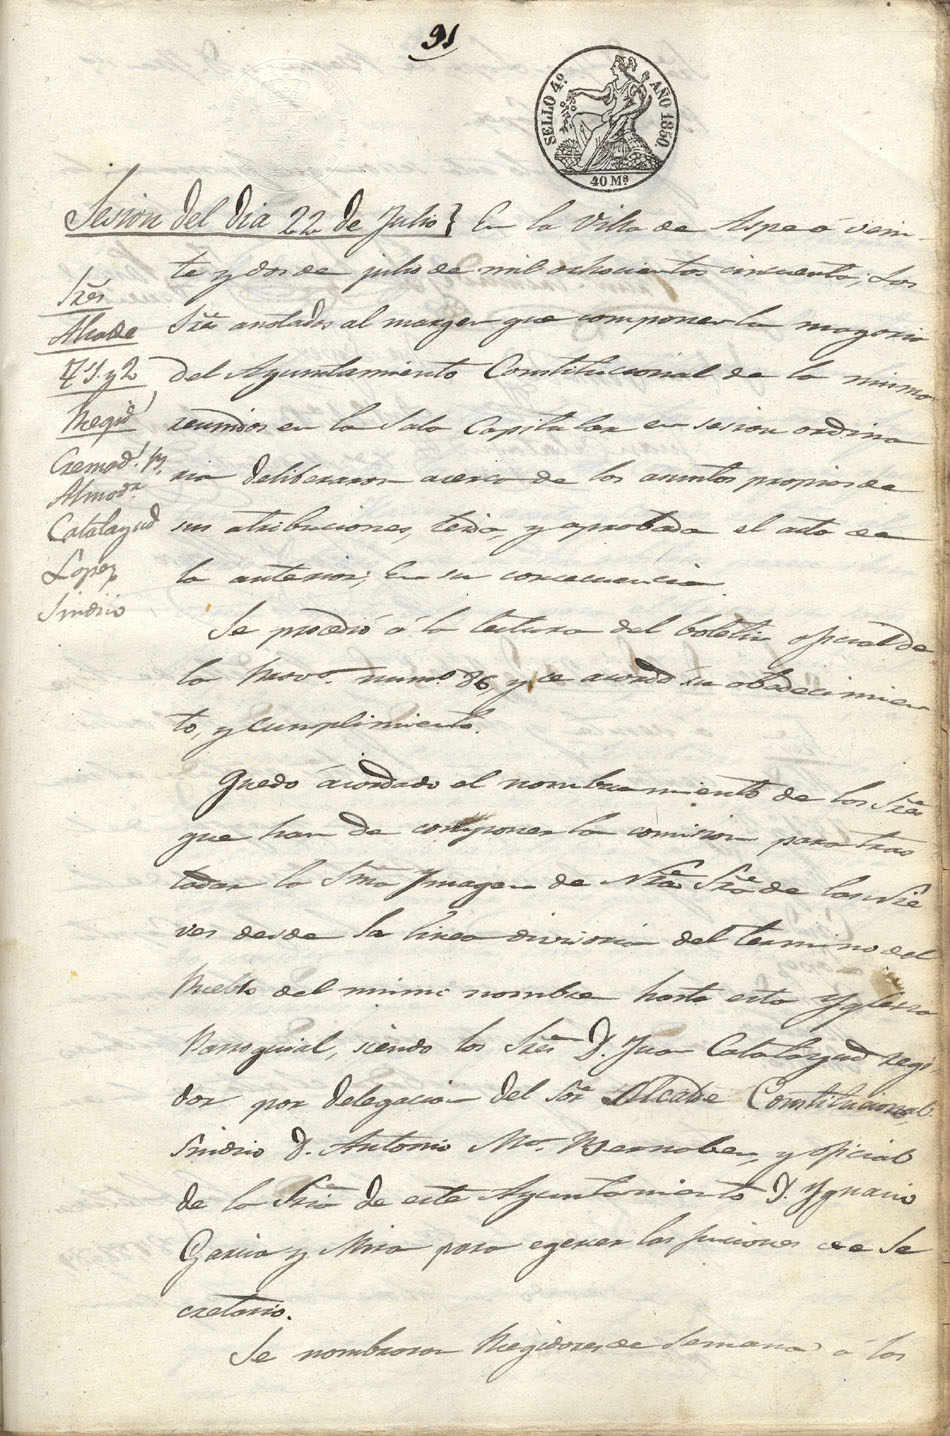 91
SELLO 4º. AÑO 1850.
40 Ms
Sesion del dia 22 de Julio} En la Villa de Aspe á vein-
te y dos de julio de mil ochocientos cincuenta; Los
Sres anotados al margen que componen la mayoria
del Ayuntamiento Constitucional de la misma
reunidos en la Sala Capitular en sesion ordina
ria deliberaron acerca de los asuntos propios de
sus atribuciones, leida, y aprobada el acta de
la anterior; En su consecuencia
Sres
Alcalde
T. 1. y 2
Regid.
Cremad.
Almodr
Catalayud
Lopez
Sindico
Se procedió á la lectura del boletin oficial de
la Prova. numo 86, y se acordó su obedecimien
to, y cumplimiento.
Quedó acordado el nombramiento de los Sres
que han de componer la comision para tras
ladar la Sma Ymagen de Ntra Sra de las Nie
ves desde la linea divisoria del termino del
Pueblo del mismo nombre hasta esta Yglesia
Parroquial, siendo los Sres D. Juan Catalayud regi
dor por delegacion del Sor Alcalde Constitucional,
Sindico D. Antonio Ma. Bernabeu, y oficial
de la Sria de este Ayuntamiento D. Ygnacio
Garcia y Mira para egercer las funciones de Se
cretario.
Se nombraron Regidores de Semana á los